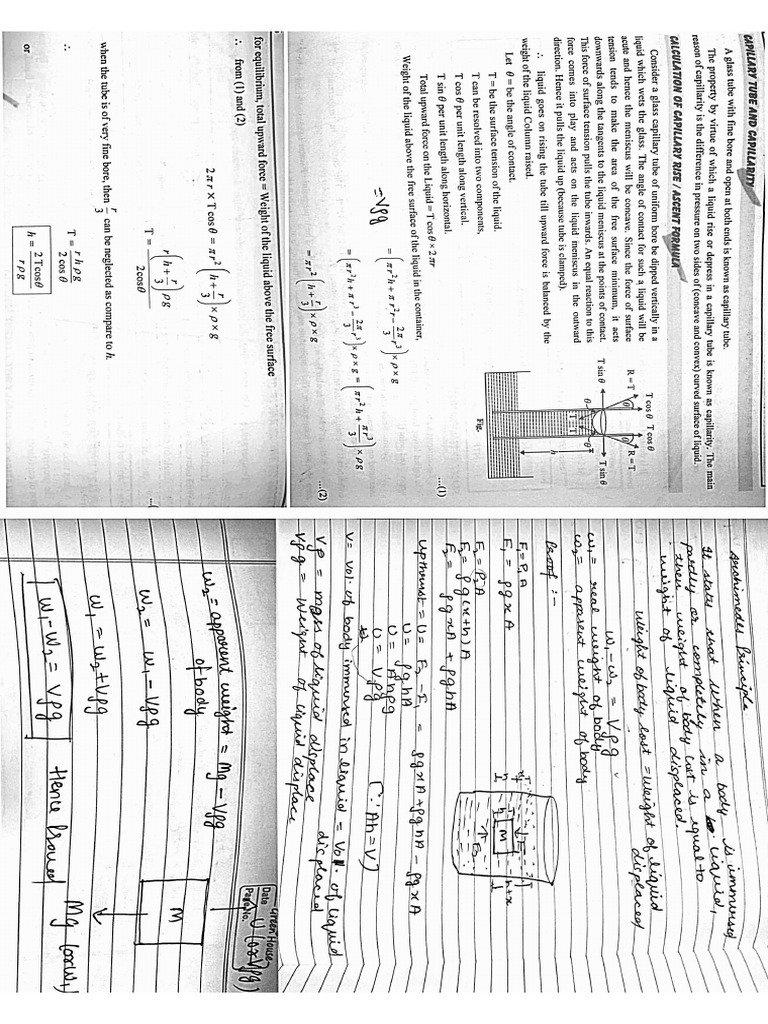 CAPILLARY TUBE AND CAPILLARITY
A glass tube with fine bore and open at both ends is known as capillary tube.
The property by virtue of which a liquid rise or depress in a capillary tube is known as capillarity. The main
reason of capillarity is the difference in pressure on two sides of (concave and convex) curved surface of liquid.
CALCULATION OF CAPILLARY RISE / ASCENT FORMULA
Consider a glass capillary tube of uniform bore be dipped vertically in a
liquid which wets the glass. The angle of contact for such a liquid will be
acute and hence the meniscus will be concave. Since the force of surface
tension tends to make the area of the free surface minimum, it acts
downwards along the tangents to the liquid meniscus at the points of contact.
This force of surface tension pulls the tube inwards. An equal reaction to this
force comes into play and acts on the liquid meniscus in the outward
direction. Hence it pulls the liquid up (because tube is clamped).
∴ liquid goes on rising the tube till upward force is balanced by the
weight of the liquid Column raised.
T cos θ T cos θ
R = T R = T
θ θ
T sin θ T sin θ
θ θ
T T
h
Fig.
Let θ = be the angle of contact.
T = be the surface tension of the liquid.
T can be resolved into two components,
T cos θ per unit length along vertical.
T sin θ per unit length along horizontal.
Total upward force on the Liquid = T cos θ × 2πr ...(1)
Weight of the liquid above the free surface of the liquid in the container,
= Vρg
= (πr²h + πr²r − 2π/3 r³) × ρ × g
= (πr²h + πr³ − 2π/3 r³) × ρ × g = (πr²h + πr³/3) × ρ × g
= πr² (h + r/3) × ρ × g ...(2)
for equilibrium, total upward force = Weight of the liquid above the free surface
∴ from (1) and (2)
2πr × T cos θ = πr² (h + r/3) × ρ × g
T = r(h + r/3)ρg / 2cosθ
when the tube is of very fine bore, then r/3 can be neglected as compare to h.
∴ T = rhρg / 2 cos θ
or h = 2Tcosθ / rρg
Archimedes Principle
It states that when a body is immersed
partly or completely in a liquid,
then weight of body lost is equal to
weight of liquid displaced.
Weight of body lost = weight of liquid
displaced
W₁ − W₂ = Vρg
W₁ = real weight of body
W₂ = apparent weight of body
Proof :-
F₁ = P₁A
F₁ = ρgxA
F₂ = P₂A
F₂ = ρg(x+h)A
F₂ = ρgxA + ρghA
x
h
M
F₁
F₂
h+x
Upthrust = U = F₂ − F₁ = ρgxA + ρghA − ρgxA
U = ρghA
U = Ahρg
U = Vρg (∵ Ah = V)
V = Vol. of body immersed in liquid = Vol. of liquid
displaced
Vρ = mass of liquid displaced
Vρg = Weight of liquid displace
Green House
Date
Page No.
U (or Vρg)
M
Mg (or W₁)
W₂ = apparent weight = Mg − Vρg
of body
W₂ = W₁ − Vρg
W₁ = W₂ + Vρg
W₁ − W₂ = Vρg Hence Proved